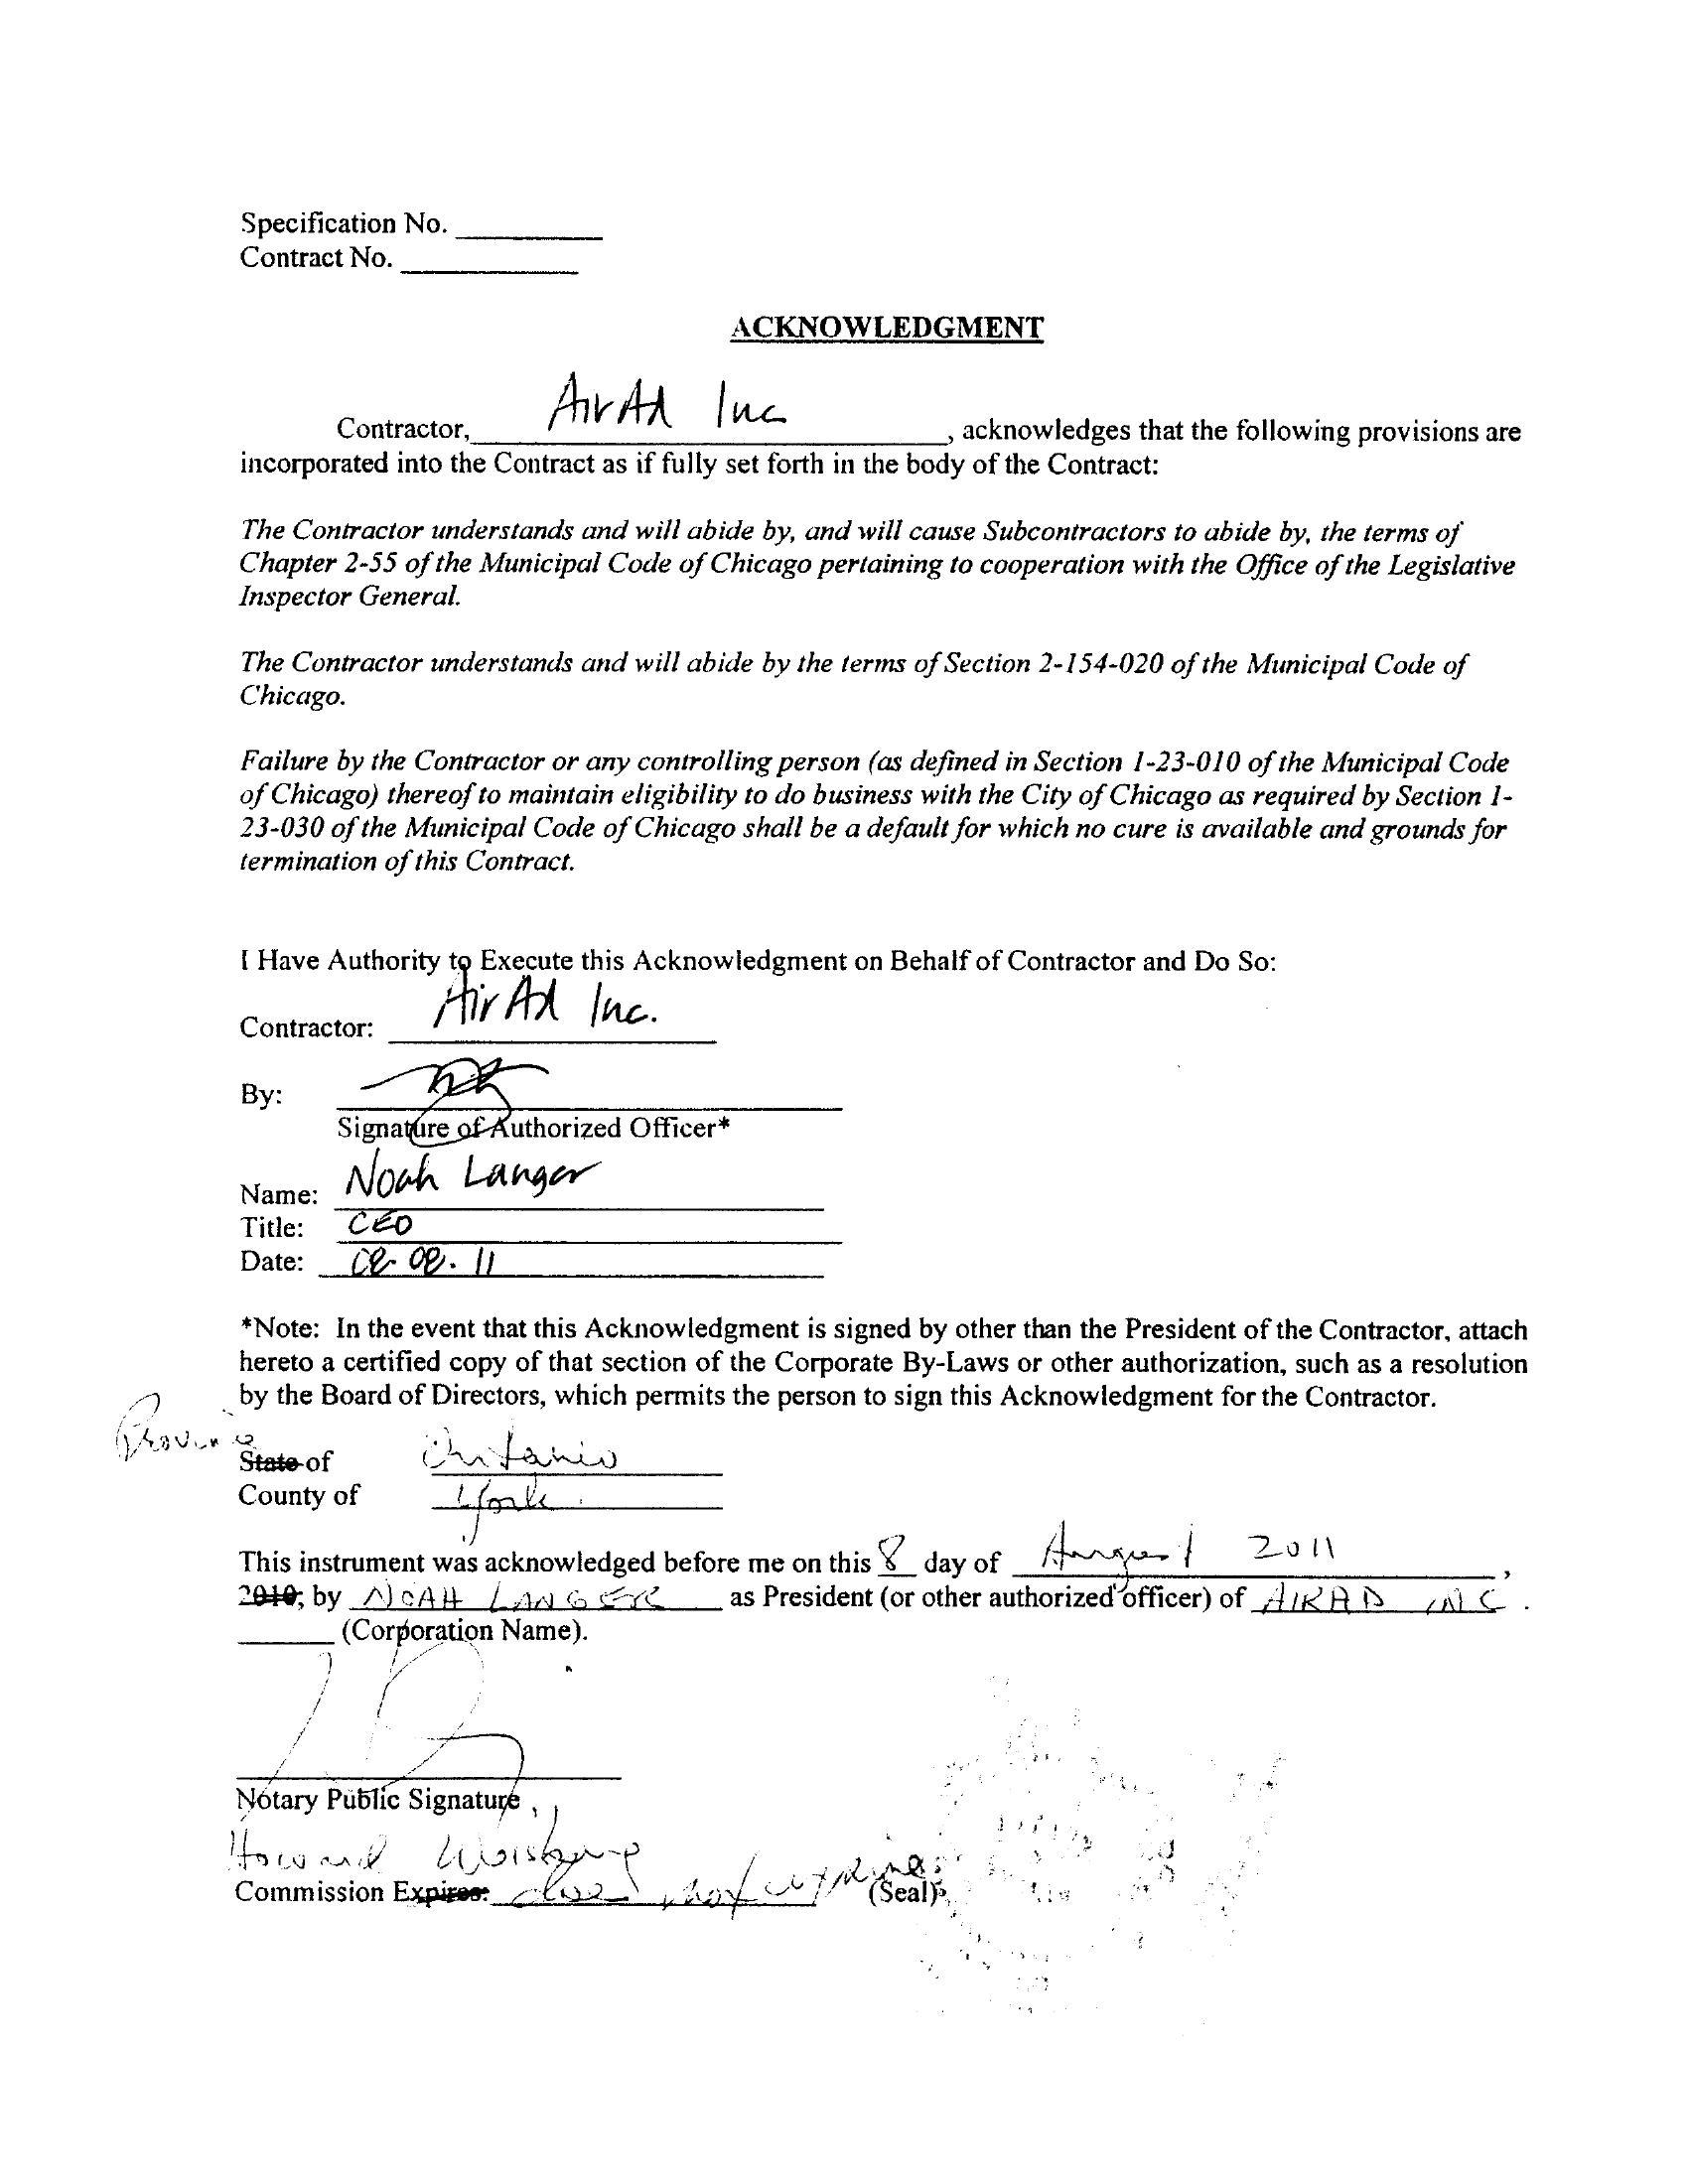 Specification No. __________
Contract No. ____________
ACKNOWLEDGMENT
Contractor, AirAd Inc, acknowledges that the following provisions are
incorporated into the Contract as if fully set forth in the body of the Contract:
The Contractor understands and will abide by, and will cause Subcontractors to abide by, the terms of
Chapter 2-55 of the Municipal Code of Chicago pertaining to cooperation with the Office of the Legislative
Inspector General.
The Contractor understands and will abide by the terms of Section 2-154-020 of the Municipal Code of
Chicago.
Failure by the Contractor or any controlling person (as defined in Section 1-23-010 of the Municipal Code
of Chicago) thereof to maintain eligibility to do business with the City of Chicago as required by Section 1-
23-030 of the Municipal Code of Chicago shall be a default for which no cure is available and grounds for
termination of this Contract.
I Have Authority to Execute this Acknowledgment on Behalf of Contractor and Do So:
Contractor: AirAd Inc.
By:
Signature of Authorized Officer*
Name: Noah Langer
Title: CEO
Date: 08.08.11
*Note: In the event that this Acknowledgment is signed by other than the President of the Contractor, attach
hereto a certified copy of that section of the Corporate By-Laws or other authorization, such as a resolution
by the Board of Directors, which permits the person to sign this Acknowledgment for the Contractor.
Province
State of Ontario
County of York
This instrument was acknowledged before me on this 8 day of August 2011,
2010; by NOAH LANGER as President (or other authorized officer) of AIRAD INC.
______ (Corporation Name).
Notary Public Signature
Howard
Commission Expires: does not expire
(Seal)